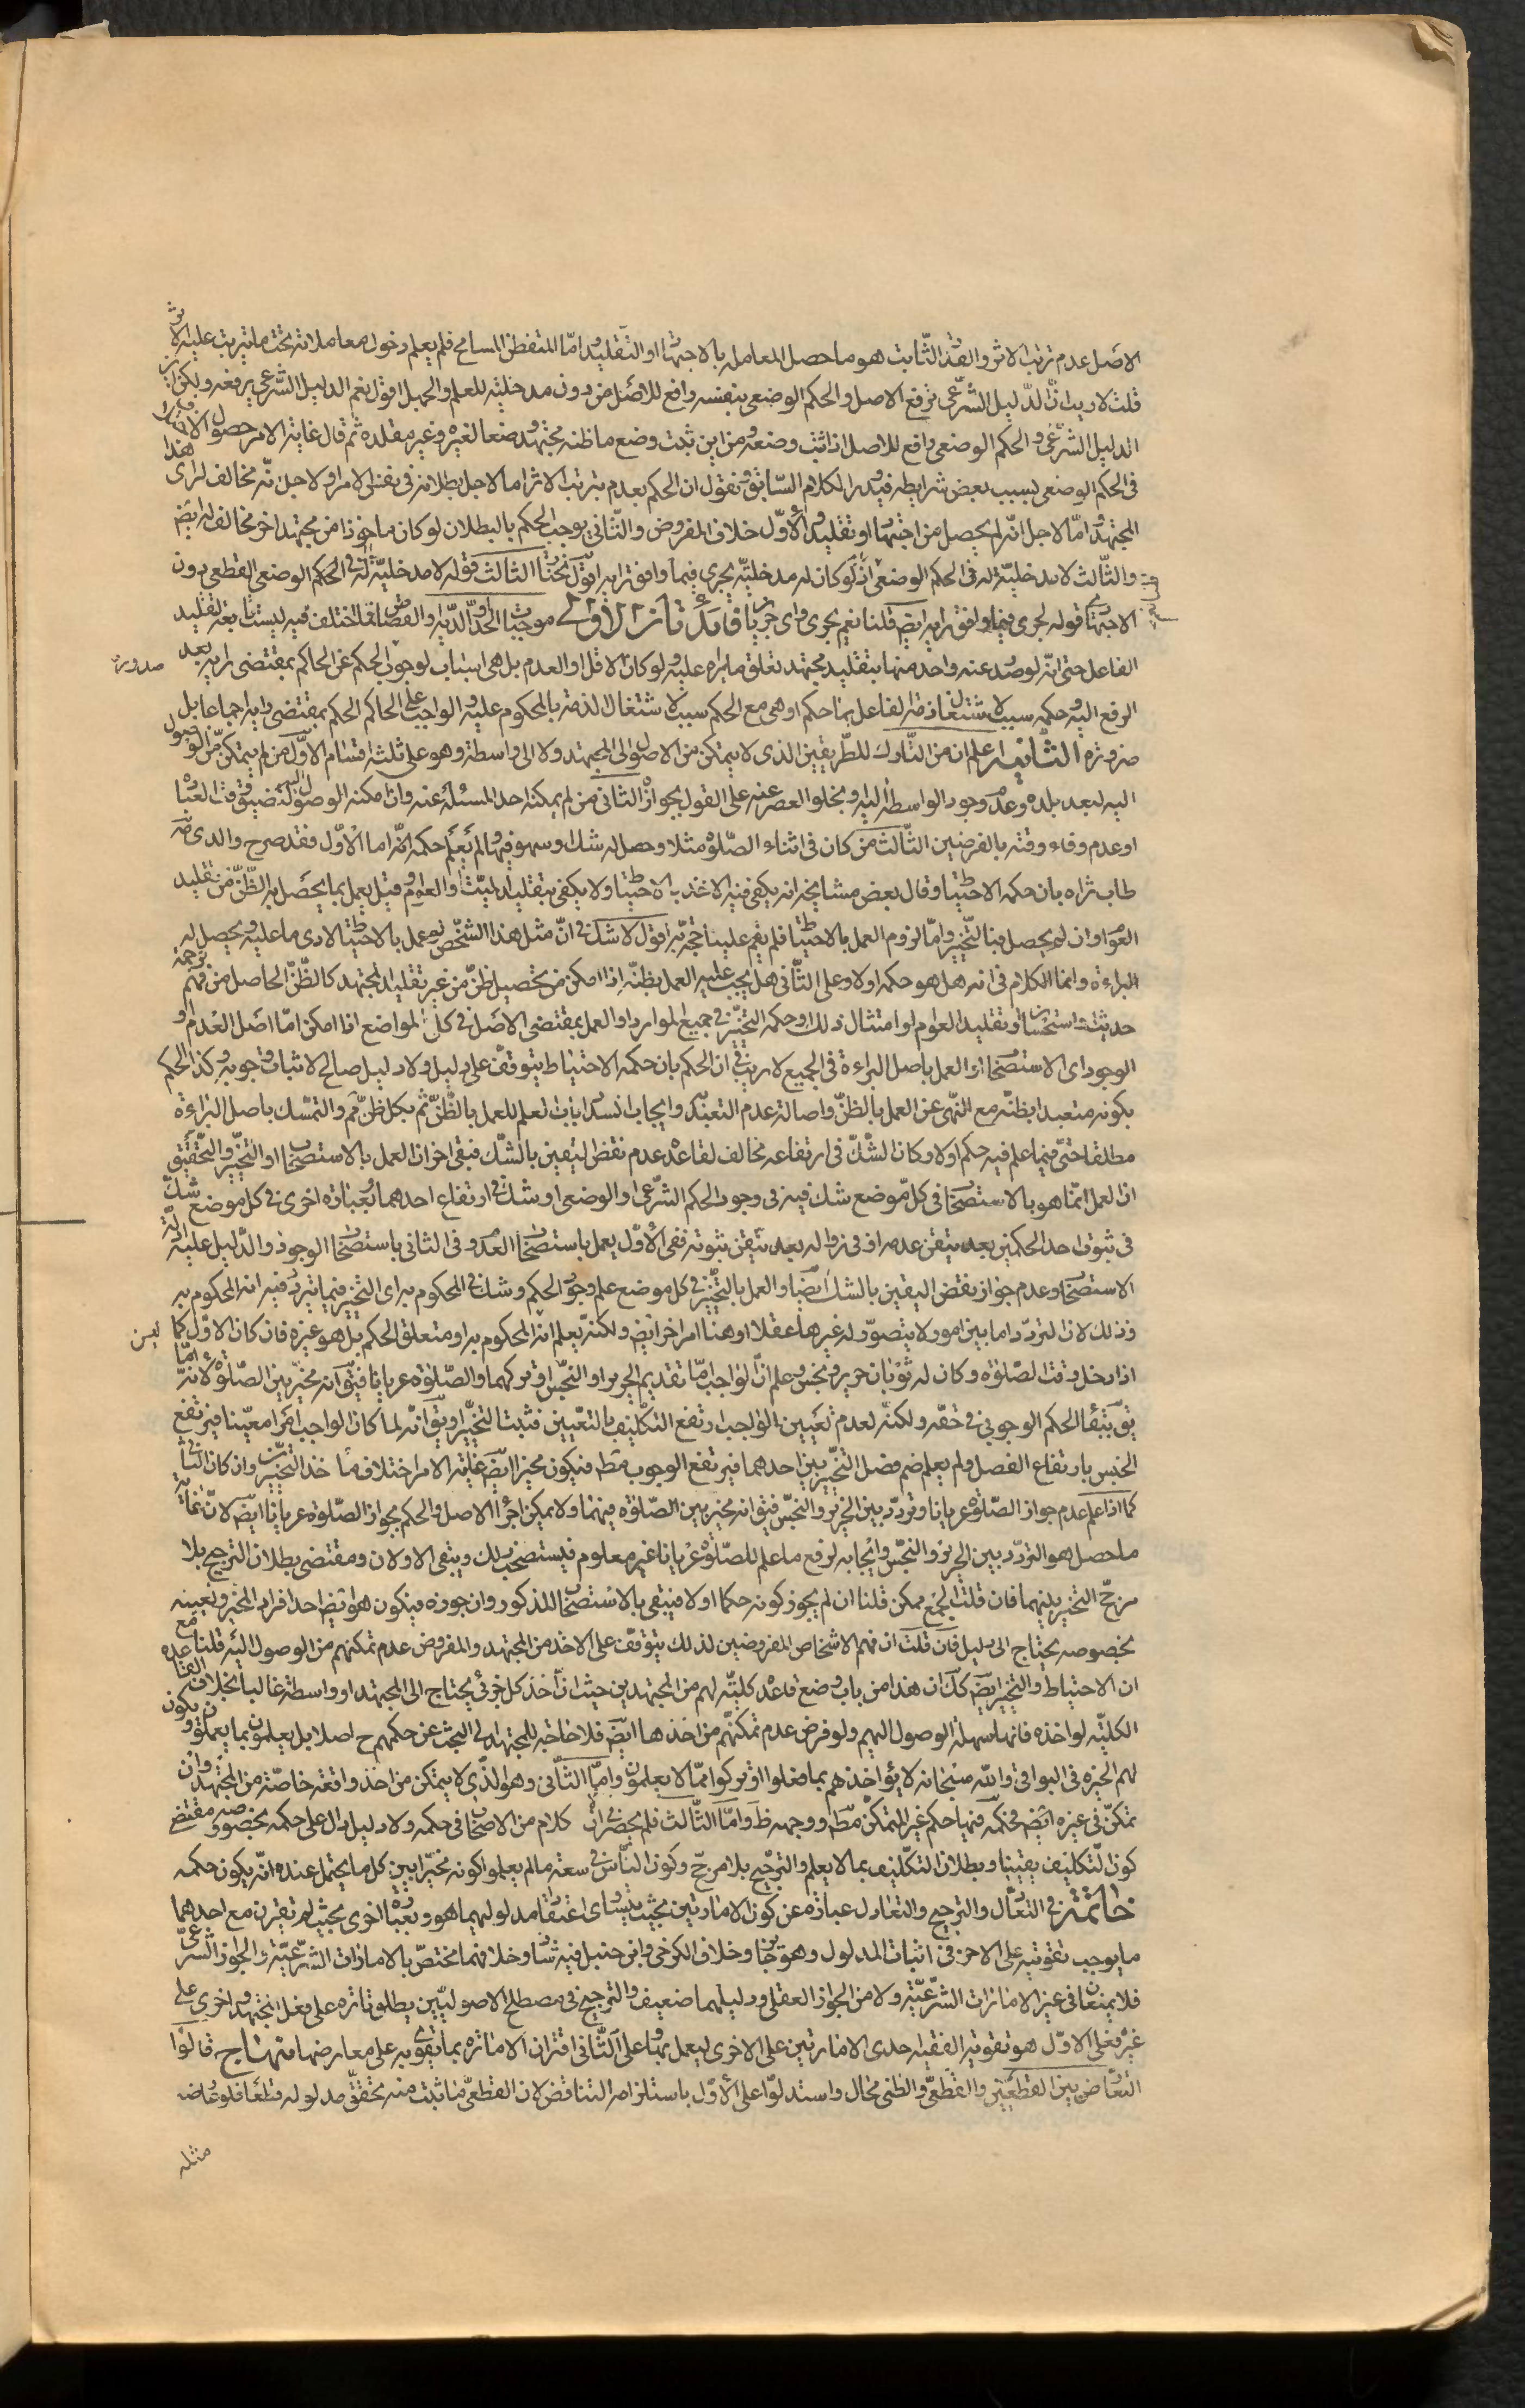 الاصل عدم ترتب الاثر والقدر الثابت هو ما حصل المعامله بالاجتهاد او التقليد واما المتفطن المسامح فلم يعلم دخول معاملاته تحت ما يترتب عليه الاثر
قلت لا ريب ان الدليل الشرعى يرفع الاصل والحكم الوضعى بنفسه رافع للاصل من دون مدخلية للعلم والجهل اقول نعم الدليل الشرعى يرفعه ولكن اين
الدليل الشرعى والحكم الوضعى رافع للاصل اذا ثبت وضعه ومن اين ثبت وضع ما ظنه مجتهد وضعا لغيره وغير مقلده ثم قال غاية الامر حصول الاختلاف
فى الحكم الوضعى بسبب بعض شرايطه فيدور الكلام السابق ونقول ان الحكم بعدم ترتب الاثر اما لاجل بطلانه فى نفس الامر او لاجل انه مخالف لراى هذا
المجتهد واما لاجل انه لم يحصل من اجتهاد او تقليد والاول خلاف المفروض والثانى يوجب الحكم بالبطلان لو كان ماخوذا من مجتهد اخر مخالف له ايضا
والثالث لا مدخلية له فى الحكم الوضعى اذ لو كان له مدخلية يجرى فيما وافق رايه اقول نختار الثالث قوله لا مدخلية له فى الحكم الوضعى القطعى دون
الاجتهادى قوله لجرى فيما وافق رايه ايض قلنا نعم يجرى واى حزازة فائدتان الاولى موجبات الحد والدية والقصاص مما اختلف فيه ليست تابعة لتقليد
الفاعل حتى انه لو صدر عنه واحد منها بتقليد مجتهد تعلق ما يراه عليه ولو كان الاقل او العدم بل هى اسباب لوجوب الحكم عن الحاكم بمقتضى رايه بعد
الرفع اليه وحكمه سبب لاشتغال ذمة الفاعل بما حكم او هى مع الحكم سبب لاشتغال الذمة بالمحكوم عليه والواجب على الحاكم الحكم بمقتضى رايه اجماعا بل
ضرورة الثانية اعلم ان من التارك للطريقين الذى لا يتمكن من الوصول الى المجتهد ولا الى واسطة وهو على ثلثة اقسام الاول من لم يتمكن من الوصول
اليه لبعد بلده وعدم وجود الواسطة اليه او بخلو العصر عنه على القول بجوازه الثانى من لم يمكنه اخذ المسئلة عنه وان امكنه الوصول اليه لضيق وقت العبادة
او عدم وفاء وقته بالفرضين الثالث من كان فى اثناء الصلوة مثلا وحصل له شك او سهو فيها لم يعلم حكمه اما الاول فقد صرح والدى
طاب ثراه بان حكمه الاحتياط وقال بعض مشايخه انه يكفى فيه الاخذ بالاحتياط ولا يكفى بتقليد الميت او العوام وقيل يعمل بما يحصل به الظن من تقليد
العوام وان لم يحصل فبالتخيير واما لزوم العمل بالاحتياط فلم يقم علينا حجة به اقول لا شك فى ان مثل هذا الشخص لو عمل بالاحتياط لادى ما عليه ويحصل له
البراءة وانما الكلام فى انه هل هو حكمه اولا وعلى الثانى هل يجب عليه العمل بظنه اذا امكن من تحصيل ظن من غير تقليد المجتهد كالظن الحاصل من فهم
حديث او استحسان او تقليد العوام او امتثال ذلك او حكمه التخيير فى جميع الموارد او العمل بمقتضى الاصل فى كل المواضع اذا امكن اما اصل العدم او
الوجود اى الاستصحاب او العمل باصل البراءة فى الجميع لا ريب فى ان الحكم بان حكمه الاحتياط يتوقف على دليل ولا دليل صالح لاثبات وجوبه وكذا الحكم
بكونه متعبدا بظنه مع النهى عن العمل بالظن واصالة عدم التعبد وايجاب انسداد باب العلم للعمل بالظن ثم بكل ظن ثم والتمسك باصل البراءة
مطلقا حتى فيما علم فيه حكم اولا وكان الشك فى ارتفاعه مخالف لقاعدة عدم نقض اليقين بالشك فبقى اخران العمل بالاستصحاب او التخيير والتحقيق
ان العمل انما هو بالاستصحاب فى كل موضع شك فيه فى وجود الحكم الشرعى او الوضعى او شك فى ارتفاع احدهما بعبارة اخرى فى كل موضع شك
فى ثبوت احد الحكمين بعد تيقن عدمه او فى زواله بعد تيقن ثبوته ففى الاول يعمل باستصحاب العدم وفى الثانى باستصحاب الوجود والدليل عليه ادلة
الاستصحاب وعدم جواز نقض اليقين بالشك ايضا والعمل بالتخيير فى كل موضع علم وجود الحكم وشك فى المحكوم به اى التخيير فيما يتردد فيه انه المحكوم به
وذلك لان التردد اما بين امور لا يتصور له غيرها عقلا او هنا امر اخر ايض ولكنه يعلم انه ليس المحكوم به او متعلق الحكم بل هو غيره فان كان الاول كما
اذا دخل وقت الصلوة وكان له ثوبان حرير ونجس وعلم ان الواجب اما تقديم الحرير او النجس او تركهما والصلوة عريانا فيق انه مخير بين الصلوة لانه اما
يق بتقاء الحكم الوجوبى فى حقه ولكنه لعدم تعيين الواجب ارتفع التكليف بالتعيين فثبت التخيير او يق انه لما كان الواجب امرا معينا فيرتفع
الجنس بارتفاع الفصل ولم يعلم ضم فصل التخيير بين احدهما فيرتفع الوجوب مط فيكون مخيرا ايض غاية الامر اختلاف ماخذ التخيير وان كان الثانى
كما اذا علم عدم جواز الصلوة عريانا وتردد بين الحرير والنجس فيق انه مخير بين الصلوة فيهما ولا يمكن اجراء الاصل والحكم بجواز الصلوة عريانا ايض لان غاية
ما حصل هو التردد بين الحرير والنجس وايجابه لرفع ما علم للصلوة عريانا غير معلوم فيستصحب ذلك ويبقى الاولان ومقتضى بطلان الترجيح بلا
مرجح التخيير بينهما فان قلت الجمع ممكن قلنا ان لم يجوز كونه حكما اولا فينتفى بالاستصحاب المذكور وان جوزه فيكون هو ايض احد افراد المخير وتعيينه
بخصوصه يحتاج الى دليل فان قلت ان فهم الاشخاص المفروضين لذلك يتوقف على الاخذ من المجتهد والمفروض عدم تمكنهم من الوصول اليه قلنا مع
ان الاحتياط والتخيير ايض كك ان هذا من باب وضع قاعدة كلية لهم من المجتهدين حيث ان اخذ كل جزئى يحتاج الى المجتهد او واسطة غالبا بخلاف القاعدة
الكلية لو اخذه فانها سهلة الوصول اليهم ولو فرض عدم تمكنهم من اخذها ايض فلا حاجة للمجتهد الى البحث عن حكمهم ح اصلا بل يعلمون بما يعملون ويكون
لهم الخيرة فى البواقى والله سبحانه لا يؤاخذهم بما فعلوا او تركوا مما لا يعلمون واما الثانى وهو الذى لا يتمكن من اخذ واقعة خاصة من المجتهد وان
تمكن فى غيره ايض فحكمه فيها حكم غير المتمكن مط ووجهه ظ واما الثالث فلم يحضرنى الان كلام من الاصحاب فى حكمه ولا دليل دال على حكمه بخصوصه مقتضى
كون التكليف يقينيا وبطلان التكليف بما لا يعلم والترجيح بلا مرجح وكون الناس فى سعة ما لم يعلموا كونه مخيرا بين كل ما يحتمل عنده انه يكون حكمه
خاتمة فى التعادل والترجيح والتعادل عبارة عن كون الامارتين بحيث يتساوى اعتقاد مدلوليهما هو وبعبارة اخرى بحيث لم تقترن مع احدهما
ما يوجب تقويته على الاخر فى اثبات المدلول وهو جايز وخلاف الكرخى وابن حنبل فيه شاذ وخلافهما مختص بالامارات الشرعية والجواز الشرعى
فلا يمنعان فى غير الامارات الشرعية ولا من الجواز العقلى ودليلهما ضعيف والترجيح فى مصطلح الاصوليين يطلق تارة على فعل المجتهد واخرى على
غيره فعلى الاول هو تقوية الفقيه احدى الامارتين على الاخرى ليعمل بها وعلى الثانى اقتران الامارة بما يقوى به على معارضها منهاج قالوا
التعارض بين القطعيين والقطعى والظنى محال واستدلوا على الاول باستلزامه التناقض لان القطعى ما ثبت منه تحقق مدلوله قطعا فلو عارضه
مثله